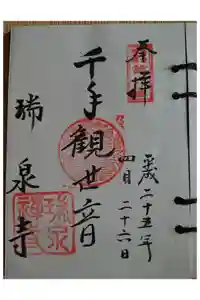 奉拝
平成二十五年
四月二十六日
千手観世音
瑞泉寺